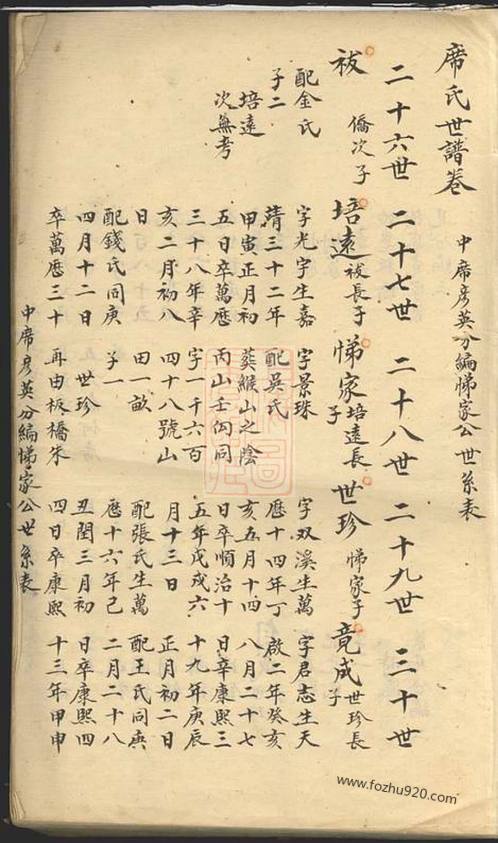 席氏世譜卷 中席彥英分編悌家公世系表
二十六世 二十七世 二十八世 二十九世 三十世
祓 僑次子
配金氏
子二
培遠
次無考
培遠 祓長子
字光宇生嘉
靖三十二年
甲寅正月初
五日卒萬曆
三十八年辛
亥二月初八
日
配錢氏同庚
四月十二日
卒萬曆三十
悌家 培遠長子
字景珠
配吳氏
葬緱山之陰
丙山壬向同
字一千六百
四十八號山
田一畝
子一
世珍
再由板橋朱
世珍 悌家子
字双溪生萬
曆十四年丁
亥五月十四
日卒順治十
五年戊戌六
月十三日
配張氏生萬
曆十六年己
丑閏三月初
四日卒康熙
竟成 世珍長子
字君志生天
啟二年癸亥
八月二十七
日卒康熙三
十九年庚辰
正月初二日
配王氏同庚
二月二十八
日卒康熙四
十三年甲申
中席彥英分編悌家公世系表
www.fozhu920.com